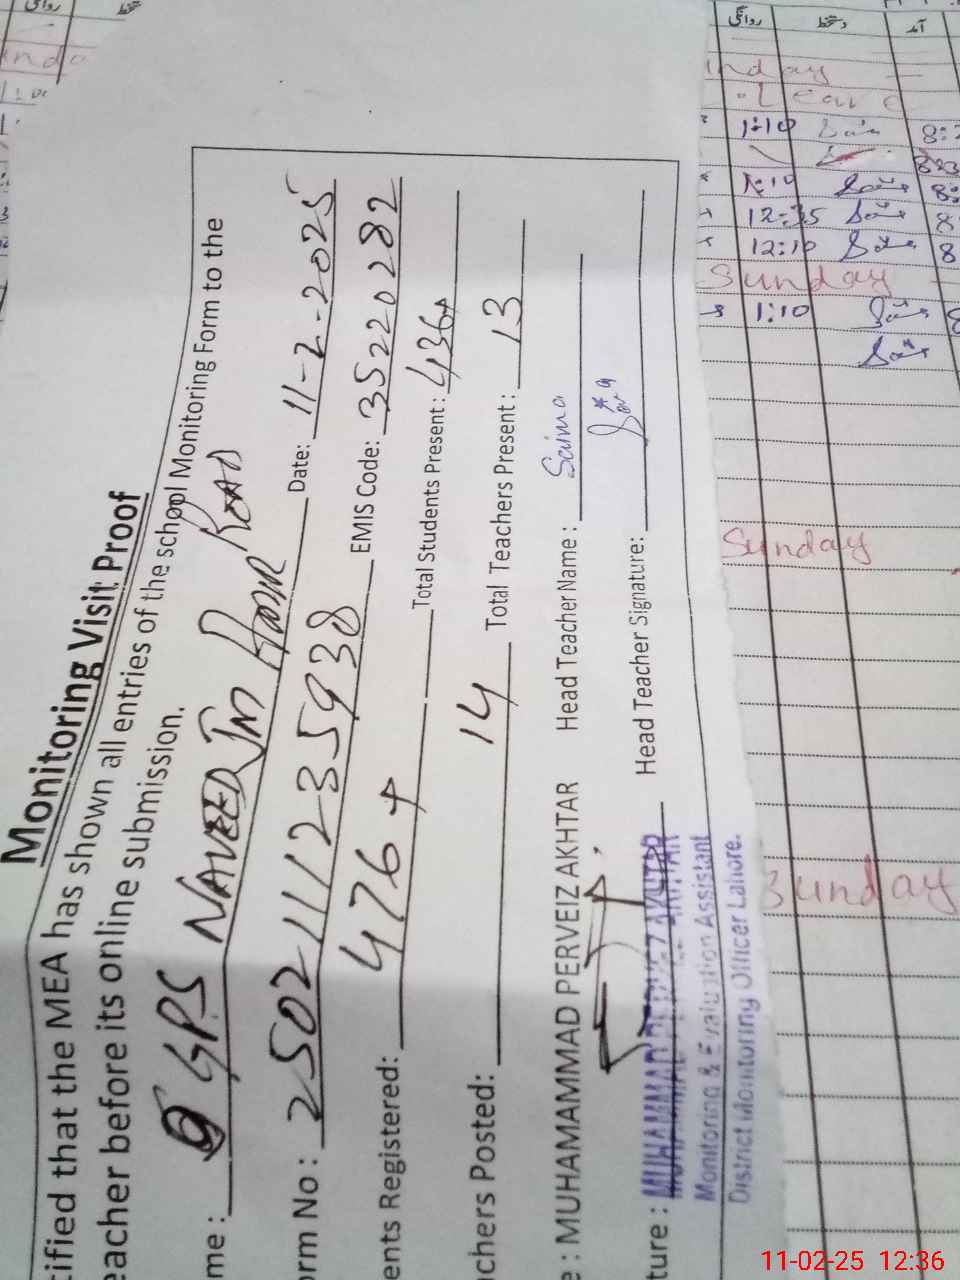 Monitoring Visit Proof
tified that the MEA has shown all entries of the school Monitoring Form to the
eacher before its online submission.
me : GPS NAVEED ROAD
orm No : 25021112359 38 Date: 11-2-2025
ents Registered: 476 EMIS Code: 35220282
Total Students Present: 436
achers Posted: 14 Total Teachers Present: 13
e : MUHAMAMMAD PERVEIZ AKHTAR Head Teacher Name : Saima
ture : Head Teacher Signature:
Monitoring & Evaluation Assistant
District Monitoring Officer Lahore.
روانگی دستخط آمد
nday
Leave
1:10
1:10
12:35
12:10
Sunday
1:10
Sunday
Sunday
11-02-25 12:36